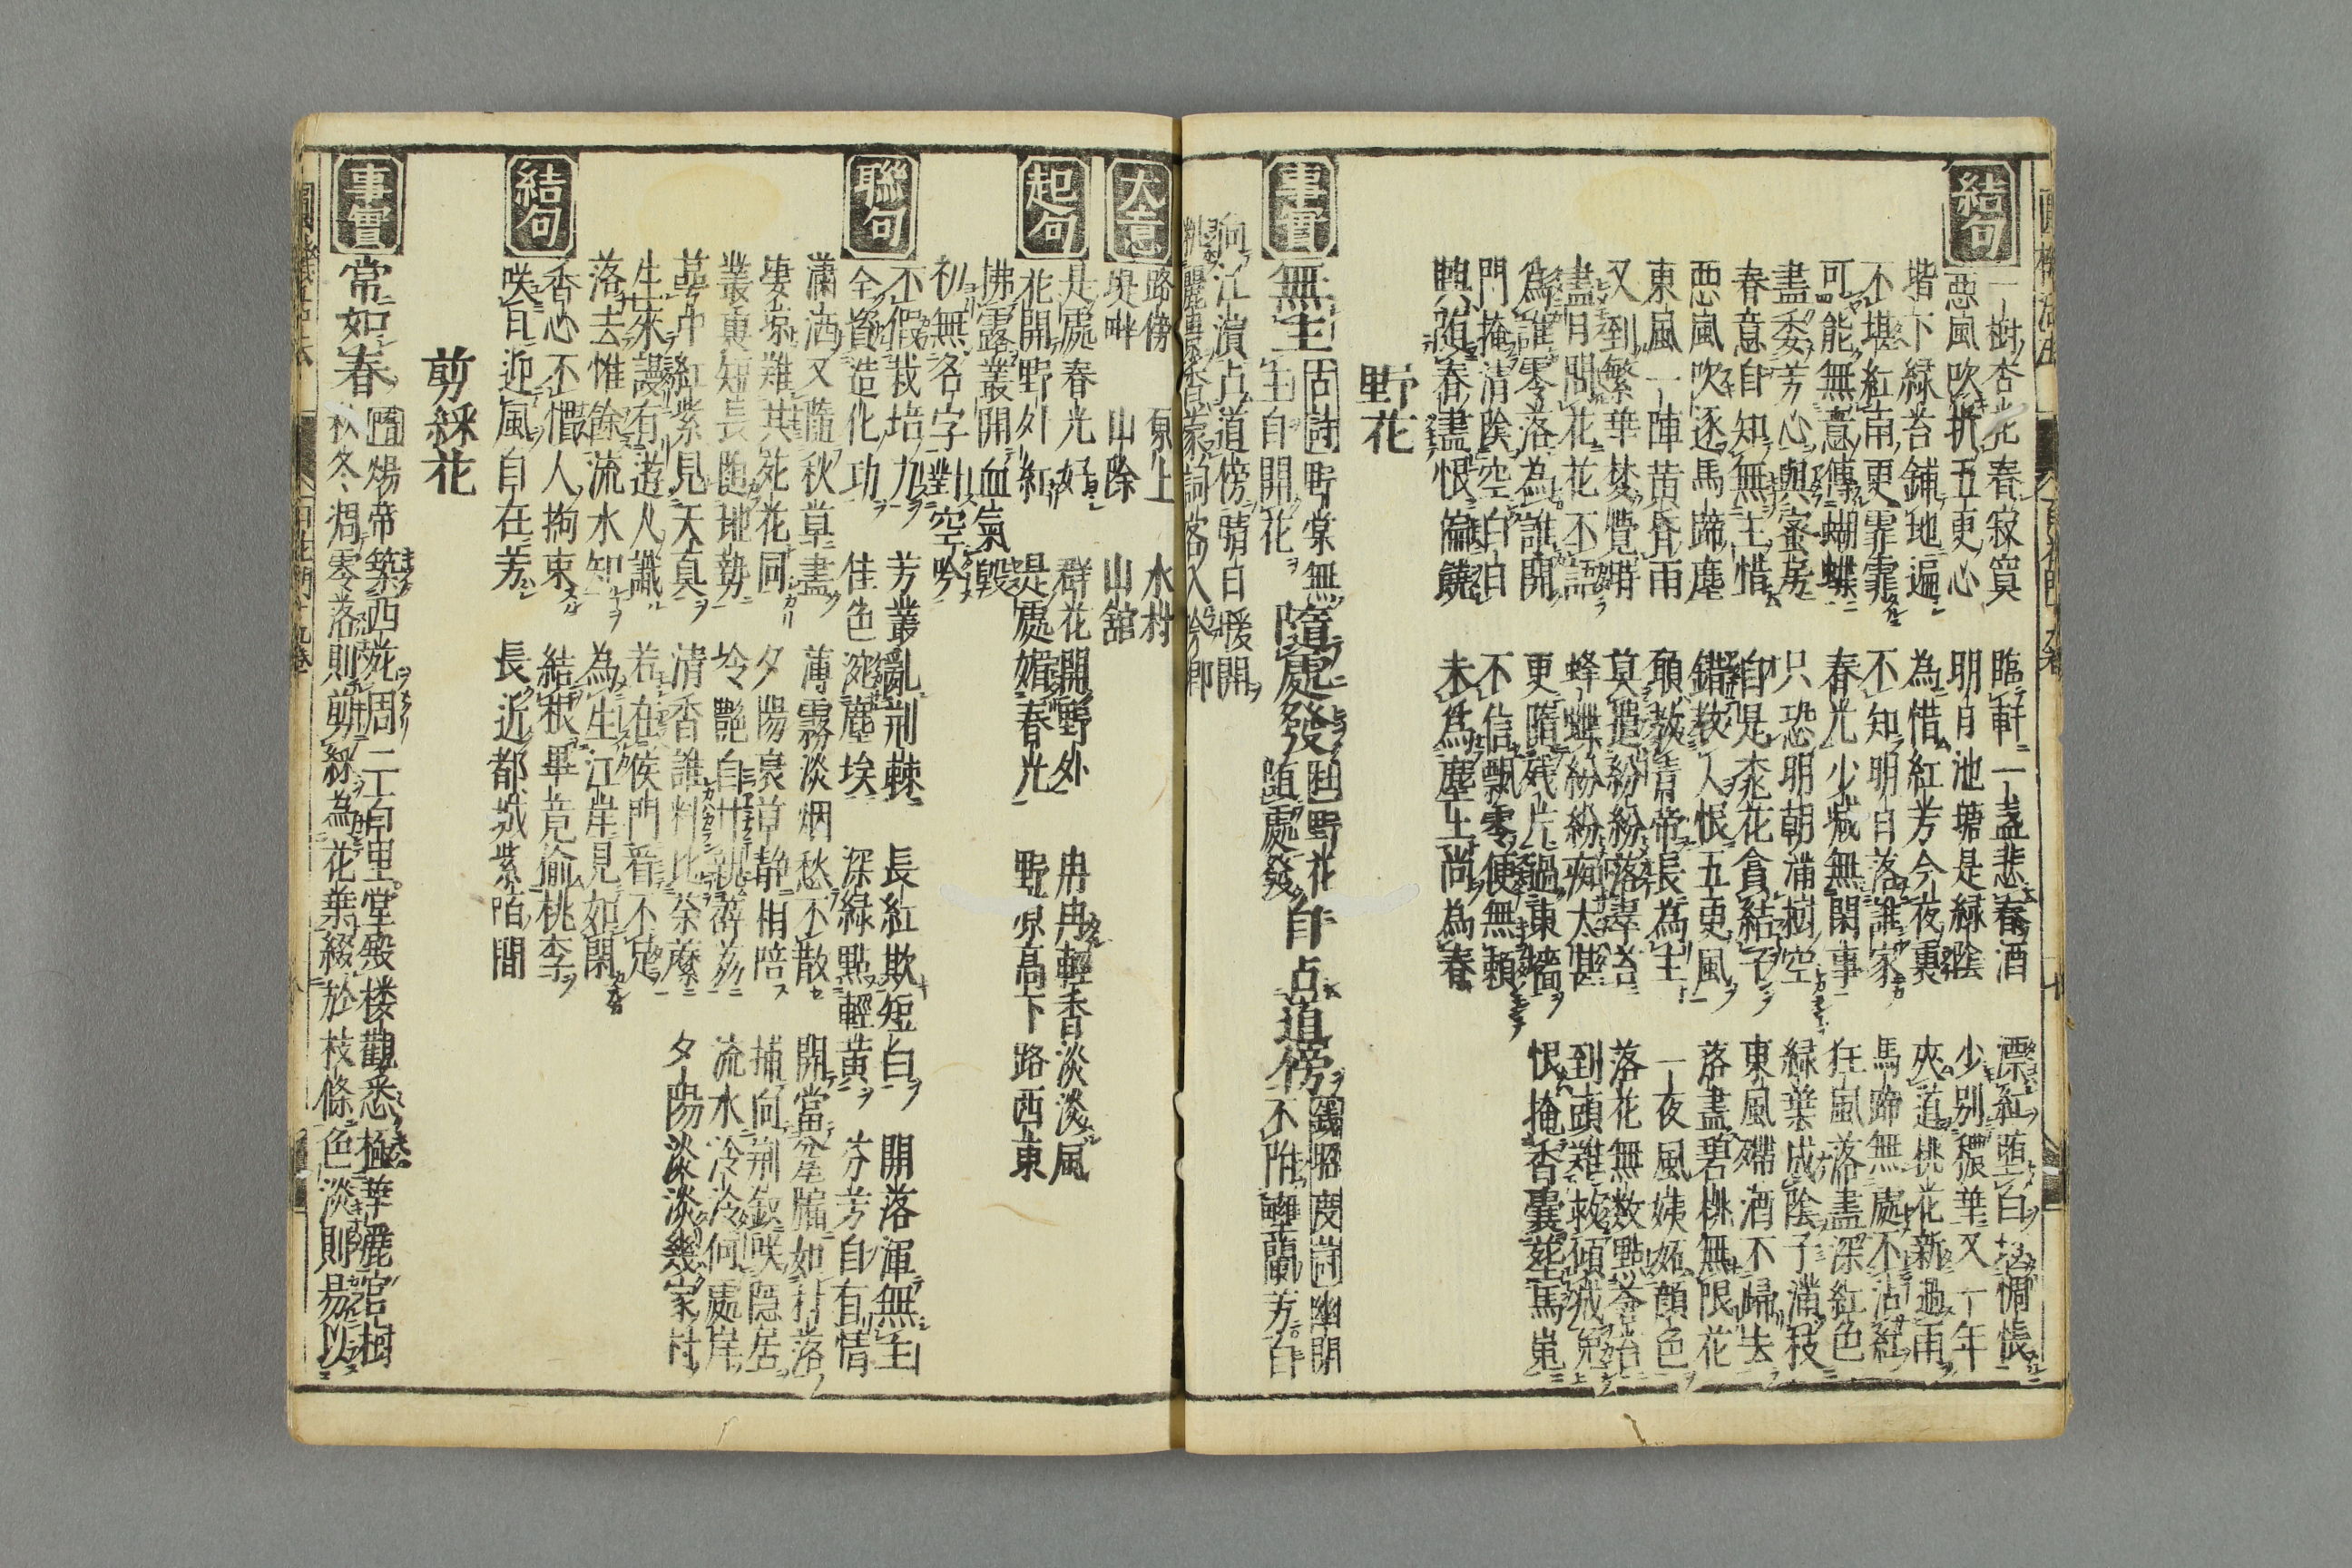 結句
一樹杏花春寂寞 臨軒一盞悲春酒 漂紅墮白堪惆悵
惡風吹折五更心 明日池塘是緑陰 少別穠華又一年
堦下緑苔鋪地遍 為惜紅芳今夜裏 夾道桃花新過雨
不堪紅雨更霏霏 不知明日落誰家 馬蹄無處不沾紅
可能無意傳蝴蝶 春光少減無閑事 狂風落盡深紅色
盡委芳心與蜜房 只恐明朝滿樹空 緑葉成陰子滿枝
春意自知無主惜 自是桃花貪結子 東風殢酒不歸去
惡風吹逐馬蹄塵 錯教人恨五更風 落盡碧桃無限花
東風一陣黄昏雨 願教青帝長為主 一夜風姨妬顔色
又到繁華夢覺時 莫遣紛紛落翠苔 落花無数點蒼苔
盡日問花花不語 蜂蝶紛紛痴太甚 到頭難救傾城兒
爲誰零落為誰開 更隨殘片過東墻 恨掩香囊葬馬嵬
門掩清陰空白白 不信飄零便無頼
興逐春盡恨徧饒 未爲塵土尚為春
野花
事實
無主 古詩野棠無主自開花 隨處發 野花随處發 自占道傍 錢昭度詩幽閒不附麗蘭芳自
向江濱占道傍晴白暖開
大意
路傍 原上 水村
堤畔 山除 山舘
起句
是處春光好 群花開野外 冉冉輕香淡淡風
花開野外紅 是處媚春光 野原高下路西東
拂露叢開血氣毀
初無名字對空吟
聯句
不假栽培力 芳叢亂荆棘 長紅欺短白 開落渾無主
全資造化功 佳色淴塵埃 深緑點輕黄 芬芳自有情
瀟洒又隨秋草盡 薄霧淡烟愁不散 開當
凄凉難共苑花同 夕陽衰草静相陪 挿向荆釵咲隠居
叢裏短長随地勢 冷艶自甘親澗茘 流水泠泠何處岸
草中紅紫見天真 清香誰料比荼蘼 夕陽淡淡幾家村
生來謾有遊人識 若在侯門看不足
落去惟餘流水知 為生江岸見如閑
結句
香心不慣人拘束 結根畢竟偷桃李
咲日迎風自在芳 長近都城紫陌間
剪綵花
事實
常如春 隋煬帝築西苑周二百里堂殿楼觀悉極華麗宮樹
秋冬凋零落則剪綵為花葉綴於枝條色淡則易以